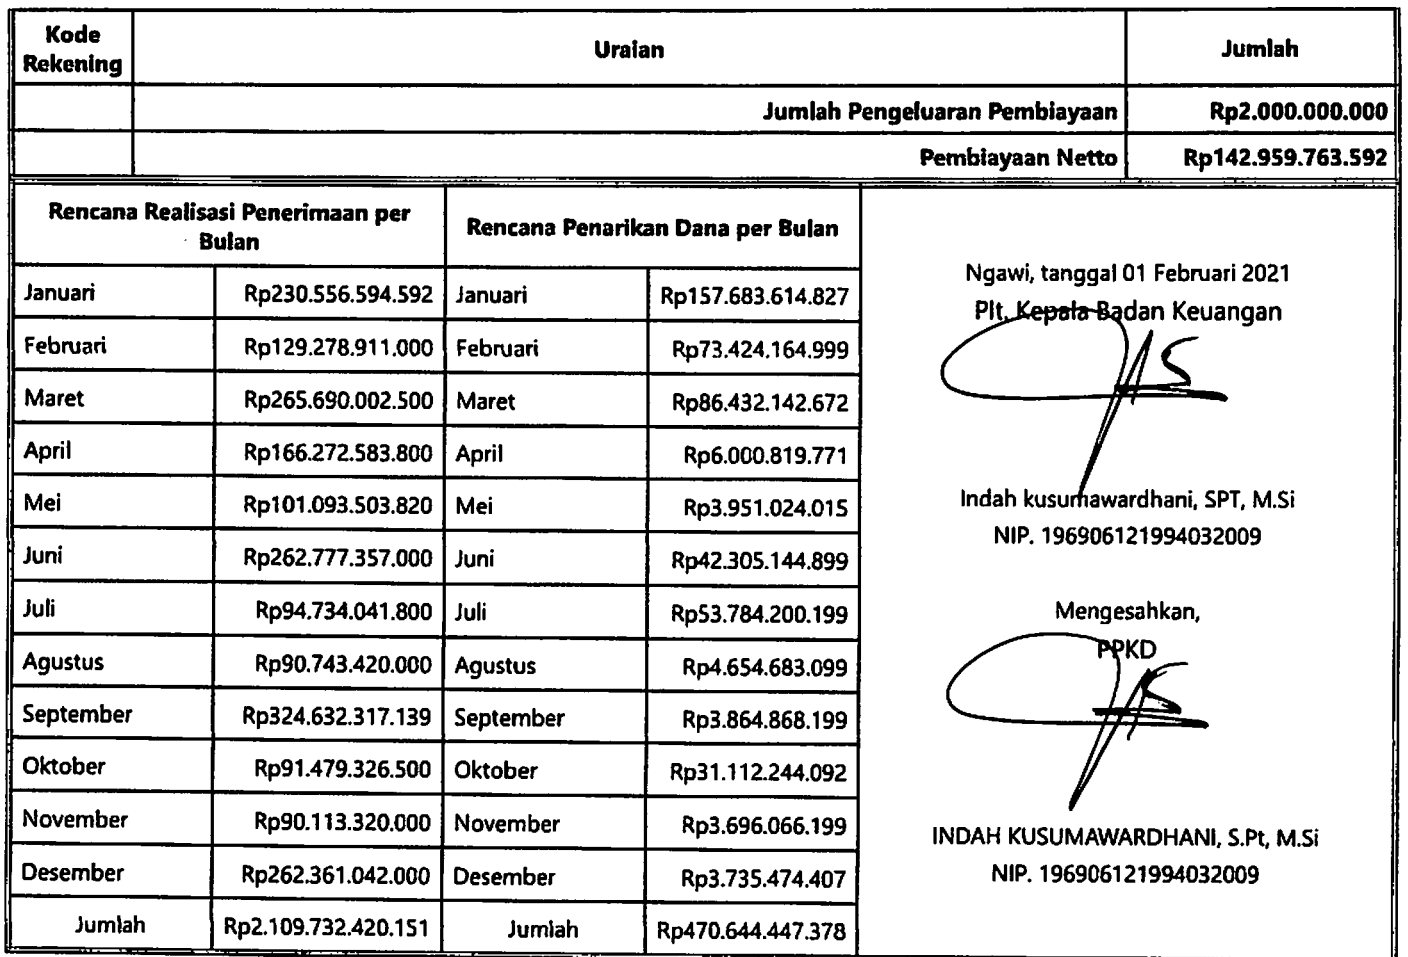 Kode Rekening Uraian Jumlah
Jumlah Pengeluaran Pembiayaan Rp2.000.000.000
Pembiayaan Netto Rp142.959.763.592
Rencana Realisasi Penerimaan per Bulan Rencana Penarikan Dana per Bulan
Januari Rp230.556.594.592 Januari Rp157.683.614.827
Februari Rp129.278.911.000 Februari Rp73.424.164.999
Maret Rp265.690.002.500 Maret Rp86.432.142.672
April Rp166.272.583.800 April Rp6.000.819.771
Mei Rp101.093.503.820 Mei Rp3.951.024.015
Juni Rp262.777.357.000 Juni Rp42.305.144.899
Juli Rp94.734.041.800 Juli Rp53.784.200.199
Agustus Rp90.743.420.000 Agustus Rp4.654.683.099
September Rp324.632.317.139 September Rp3.864.868.199
Oktober Rp91.479.326.500 Oktober Rp31.112.244.092
November Rp90.113.320.000 November Rp3.696.066.199
Desember Rp262.361.042.000 Desember Rp3.735.474.407
Jumlah Rp2.109.732.420.151 Jumlah Rp470.644.447.378
Ngawi, tanggal 01 Februari 2021
Plt. Kepala Badan Keuangan
Indah kusumawardhani, SPT, M.Si
NIP. 196906121994032009
Mengesahkan,
PPKD
INDAH KUSUMAWARDHANI, S.Pt, M.Si
NIP. 196906121994032009